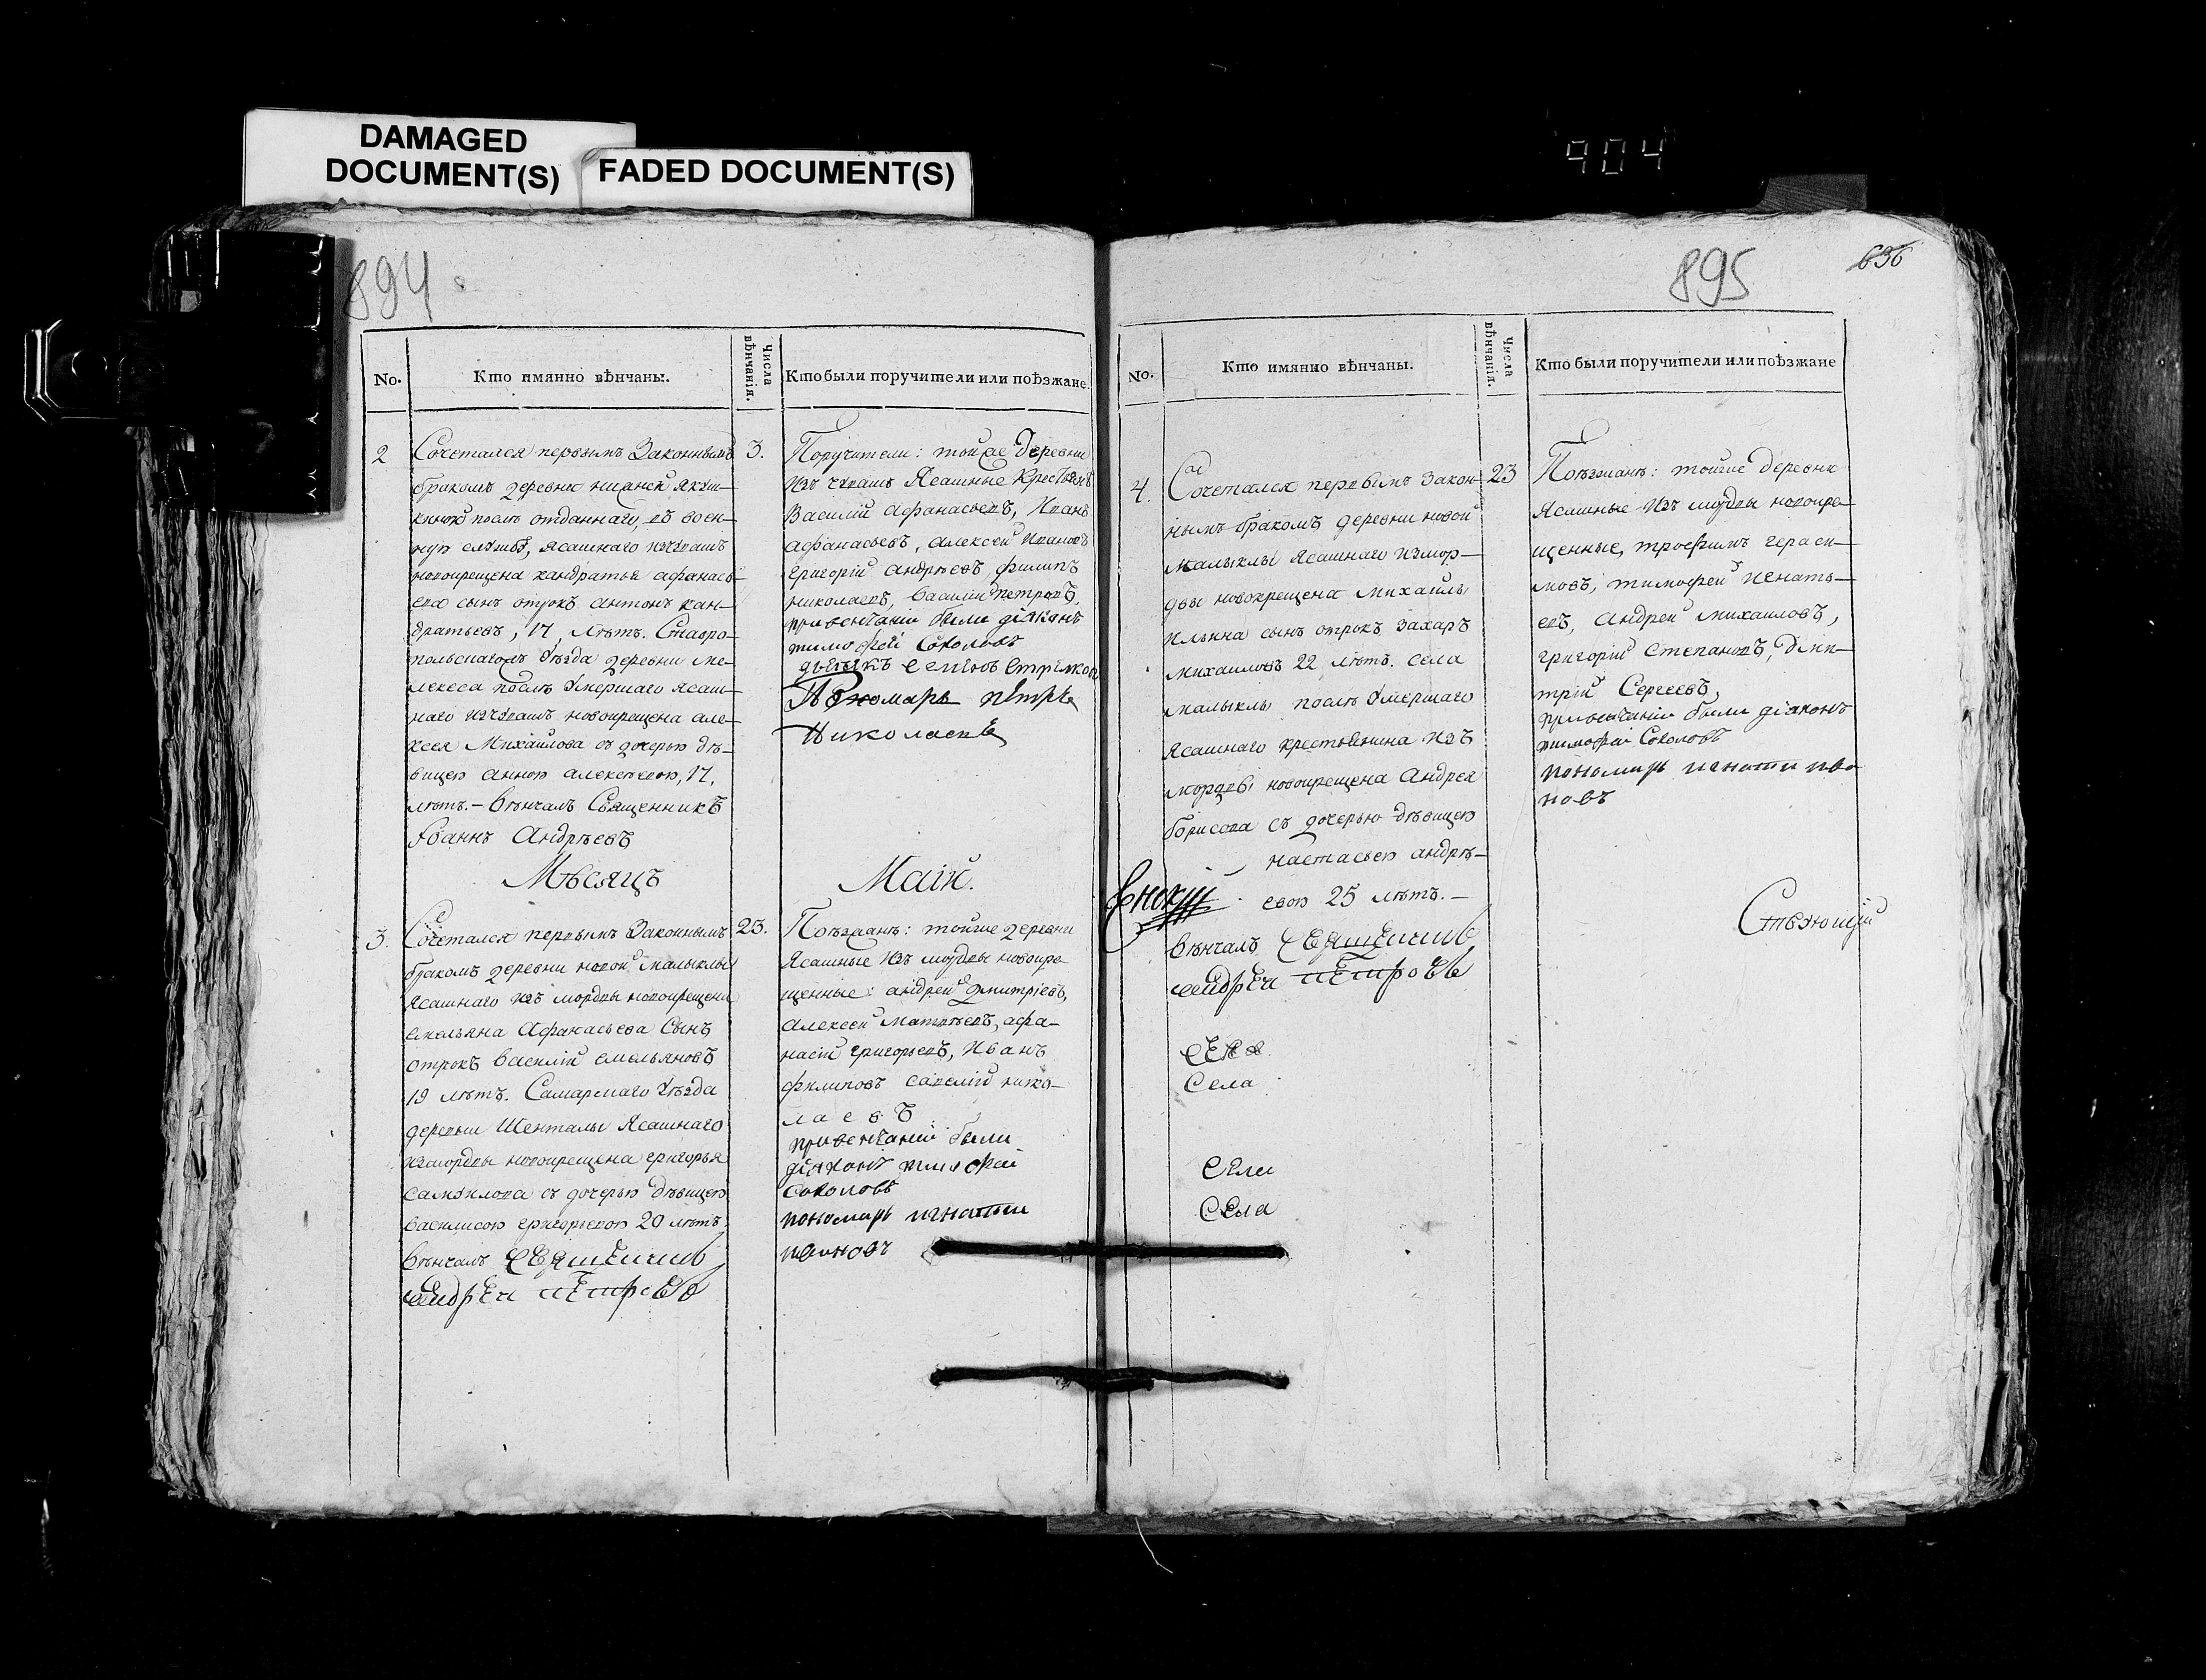 DAMAGED
DOCUMENT(S)
FADED DOCUMENT(S)
904
894
No.
Кто имянно вѣнчаны.
Числа
вѣнчанія.
Кто были поручители или поѣзжане.
2
Сочетался первымъ Законнымъ
бракомъ деревни
послѣ отданнаго, въ воен-
ную службу, ясашнаго изчувашъ
новокрещена кандратья афанась-
ева сынъ отрокъ антонъ кан-
дратьевъ, 17, лѣтъ. Ставро-
польскагожъ уѣзда деревни ме-
лекеса послѣ умершаго ясаш-
наго изчувашъ новокрещена але-
ксея Михайлова съ дочерью дѣ-
вицею анною алексѣевою, 17,
лѣтъ. – вѣнчалъ Священникъ
Іоаннъ Андрѣевъ
3.
Поручители: тойже деревни
изъ чувашъ Ясашные крестьянѣ
Василій афанасьевъ, Иванъ
афанасьевъ, алексей Ивановъ
григорій андрѣевъ, филипъ
николаевъ, василій петровъ,
привенчаніи были діяконъ
тимофей Соколовъ
дьячекъ семионъ стрелковъ
Пономарь петръ
Николаевъ
Мѣсяцъ
Маій.
3.
Сочетался первымъ Законнымъ
бракомъ деревни новой малыклы
Ясашнаго изъ мордвы новокрещена
емельяна Афанасьева Сынъ
отрокъ василій емельяновъ
19 лѣтъ. Самарскаго уѣзда
деревни Шенталы Ясашнаго
измордвы новокрещена григорья
самойлова съ дочерью дѣвицею
василисою григорьевою 20 лѣтъ,
вѣнчалъ священникъ
андрей петровъ
23.
Поѣзжанѣ: тойже деревни
Ясашные изъ мордвы новокре-
щенные: андрей дмитріевъ,
алексей матвѣевъ, афа-
насій григорьевъ, Иванъ
филиповъ савелій нико-
лаевъ
привенчаніи были
діяконъ тимофей
соколовъ
пономарь игнатей
ивановъ
895
636
No.
Кто имянно вѣнчаны.
Числа
вѣнчанія.
Кто были поручители или поѣзжане
4.
Сочетался первымъ Закон-
нымъ бракомъ деревни новой
малыклы Ясашнаго измор-
двы новокрещена михайлы
ильина сынъ отрокъ захаръ
михаиловъ 22 лѣтъ. села
малыклы послѣ умершаго
Ясашнаго крестьянина изъ
мордвы новокрещена Андрея
борисова съ дочерью дѣвицею
настасьею андрѣ-
евою 25 лѣтъ. –
вѣнчалъ священникъ
андрей петровъ
23
Поѣзжанѣ: тойже деревни
Ясашные изъ мордвы новокре-
щенные, трофимъ гераси-
мовъ, тимофей игнать-
евъ, андрей михаиловъ,
григорій степановъ, дми-
трій Сергеевъ,
привенчаніи были діяконъ
тимофей Соколовъ
пономарь игнатей ива
новъ
Села
Села
Села